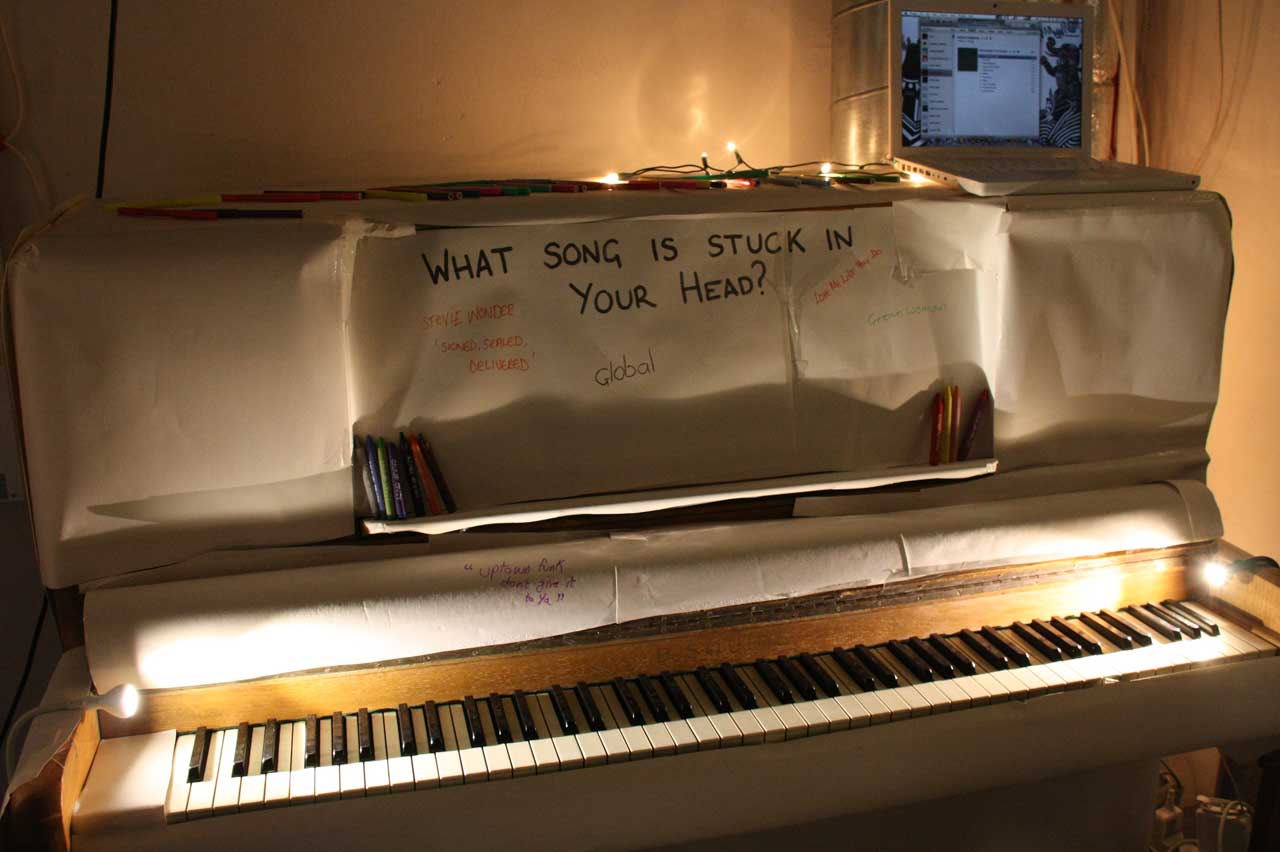 WHAT SONG IS STUCK IN
YOUR HEAD?
STEVIE WONDER
'SIGNED, SEALED,
DELIVERED'
Global
Love Me Like You Do
Green Woman
"uptown funk
dont give it
to ya"